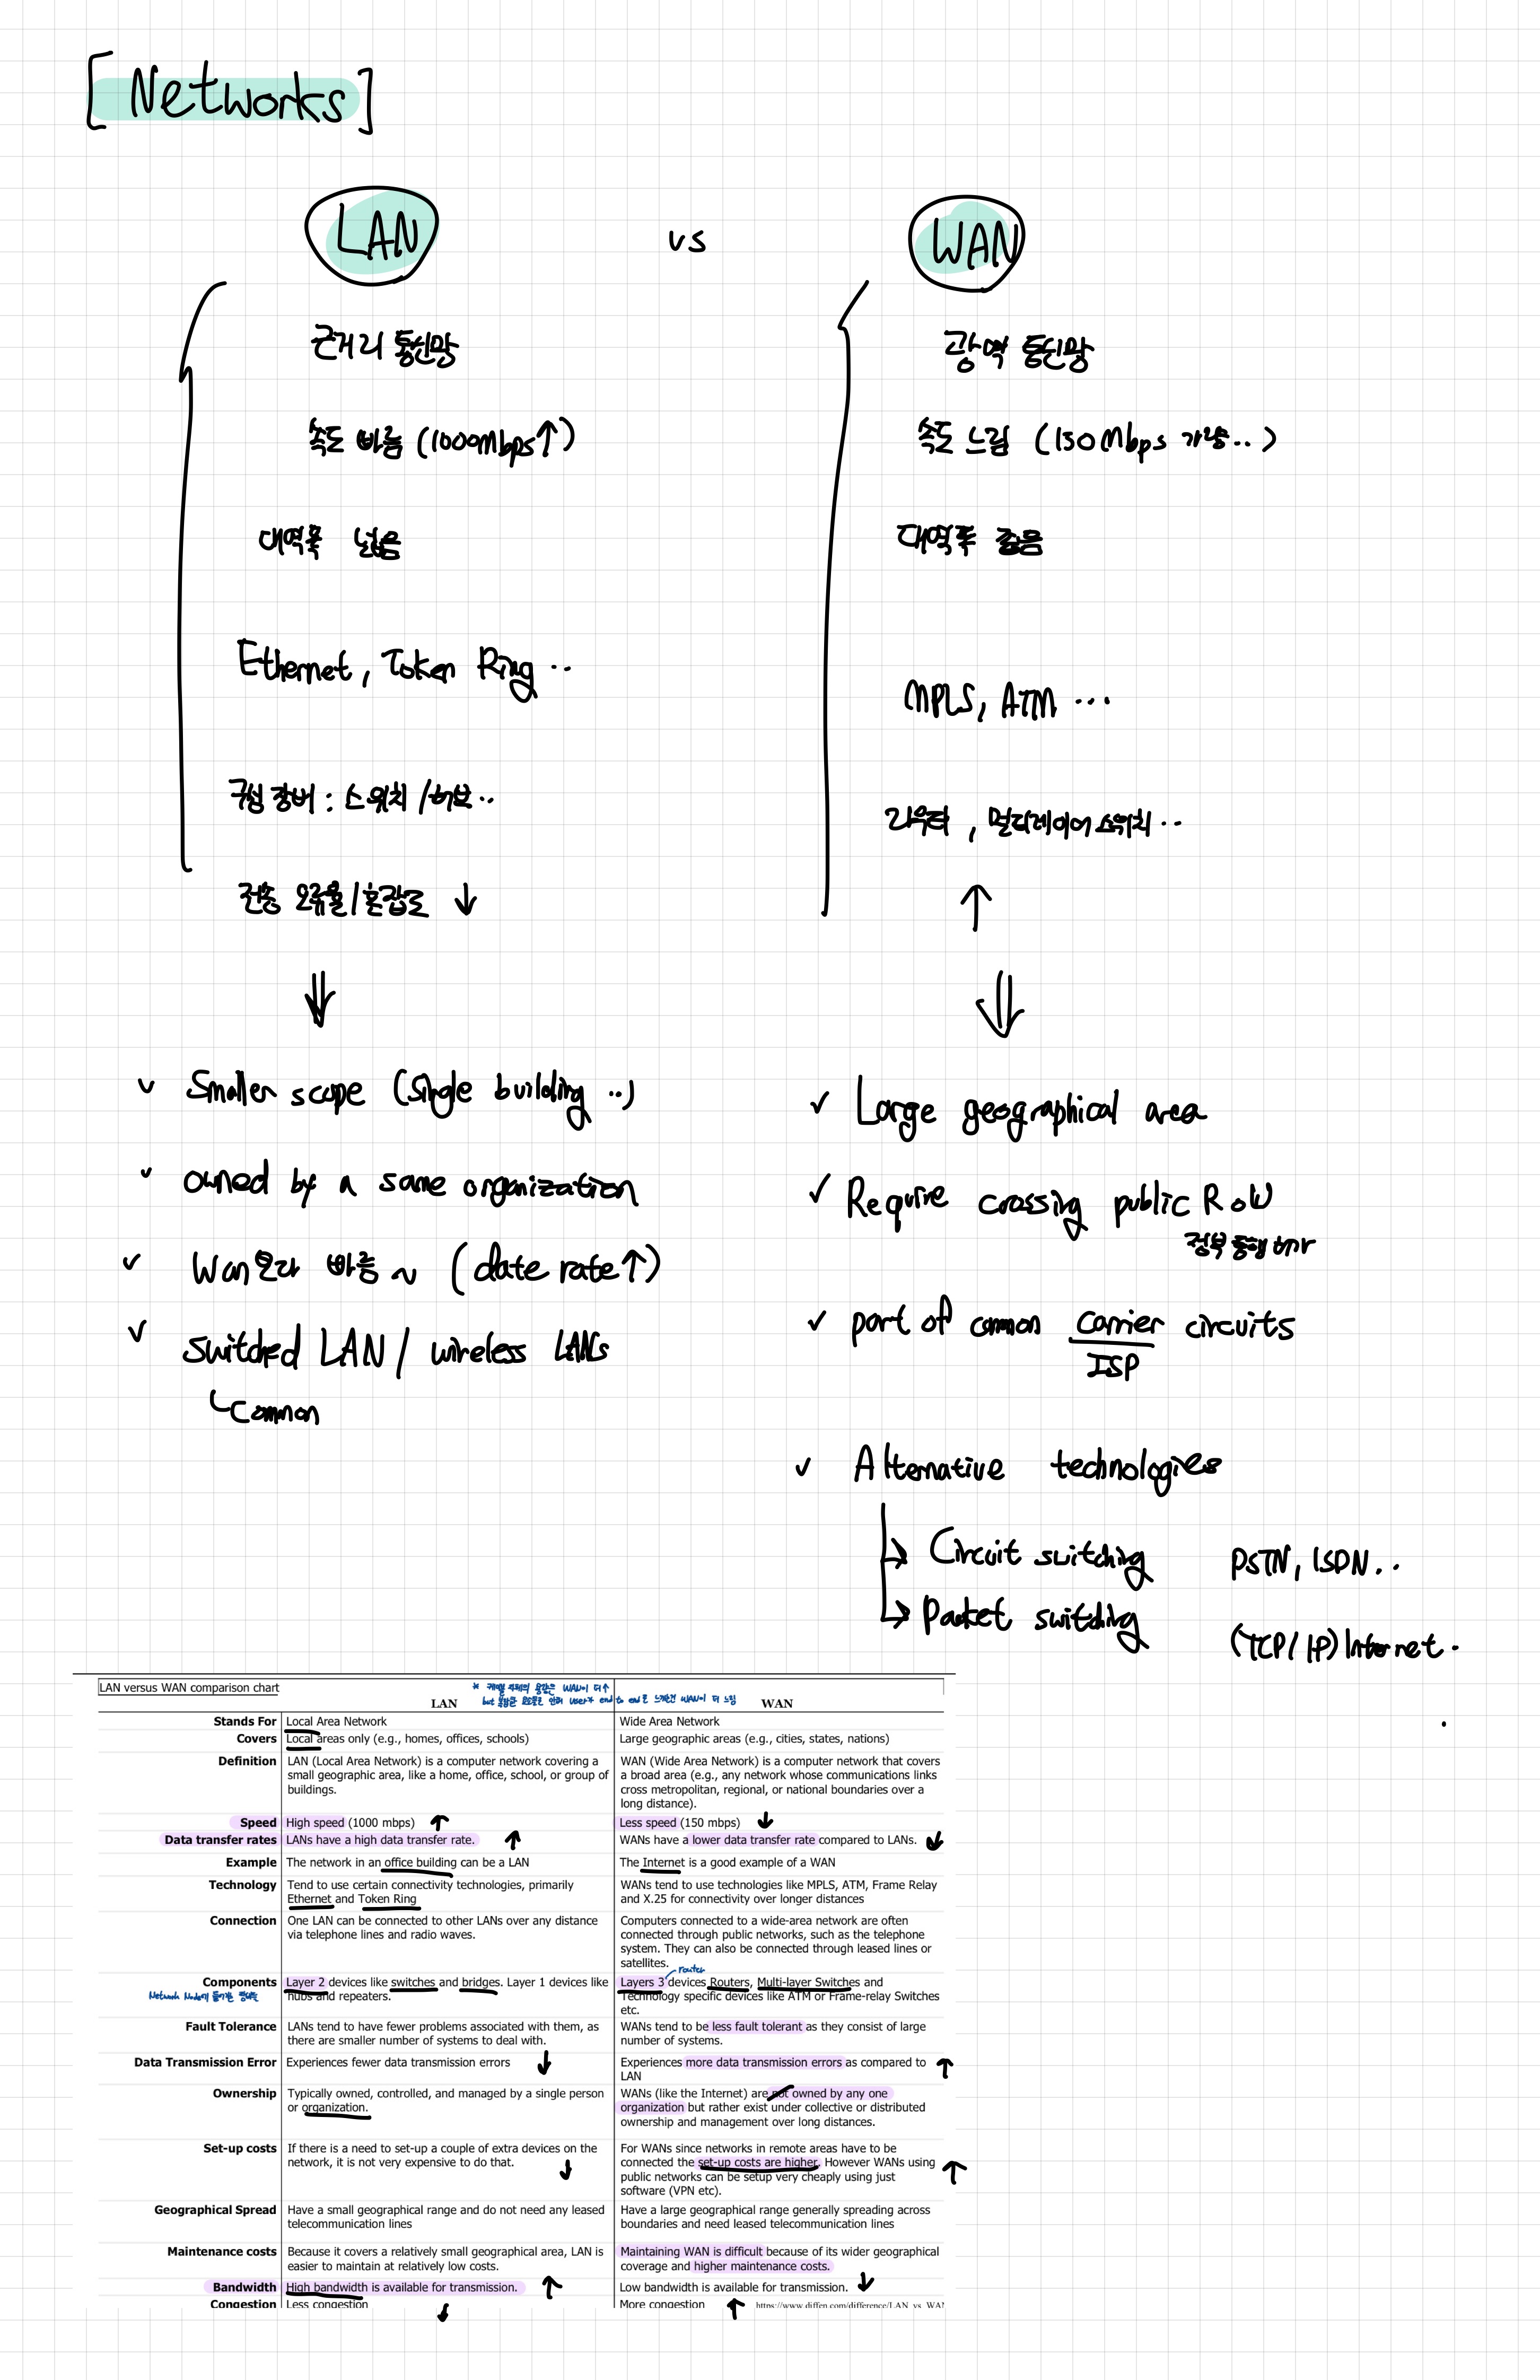 [Networks]
LAN vs WAN
근거리 통신망
속도 빠름 (1000Mbps↑)
대역폭 넓음
Ethernet, Token Ring ..
구성 장비 : 스위치 / 허브..
전송 오류율/혼잡도 ↓
광역 통신망
속도 느림 (150Mbps 가량..)
대역폭 좁음
MPLS, ATM ...
라우터, 멀티레이어 스위치..
↑
⇓
✓ Smaller scope (single building ..)
✓ owned by a same organization
✓ Wan보다 빠름 ~ (date rate↑)
✓ switched LAN / wireless LANs
Common
⇓
✓ Large geographical area
✓ Require crossing public RoW
정부 통행 허가
✓ part of common carrier circuits
ISP
✓ Alternative technologies
→ Circuit switching PSTN, ISDN..
→ Packet switching (TCP/IP) Internet..
LAN versus WAN comparison chart
* 케이블 자체의 용량은 WAN이 더↑
but user가 end to end로 느끼는건 WAN이 더 느림
LAN WAN
Stands For Local Area Network Wide Area Network
Covers Local areas only (e.g., homes, offices, schools) Large geographic areas (e.g., cities, states, nations)
Definition LAN (Local Area Network) is a computer network covering a
small geographic area, like a home, office, school, or group of
buildings.
WAN (Wide Area Network) is a computer network that covers
a broad area (e.g., any network whose communications links
cross metropolitan, regional, or national boundaries over a
long distance).
Speed High speed (1000 mbps) ↑ Less speed (150 mbps) ↓
Data transfer rates LANs have a high data transfer rate. ↑ WANs have a lower data transfer rate compared to LANs. ↓
Example The network in an office building can be a LAN The Internet is a good example of a WAN
Technology Tend to use certain connectivity technologies, primarily
Ethernet and Token Ring
WANs tend to use technologies like MPLS, ATM, Frame Relay
and X.25 for connectivity over longer distances
Connection One LAN can be connected to other LANs over any distance
via telephone lines and radio waves.
Computers connected to a wide-area network are often
connected through public networks, such as the telephone
system. They can also be connected through leased lines or
satellites.
Components Layer 2 devices like switches and bridges. Layer 1 devices like
hubs and repeaters.
Network Node에 들어가는
router
Layers 3 devices Routers, Multi-layer Switches and
Technology specific devices like ATM or Frame-relay Switches
etc.
Fault Tolerance LANs tend to have fewer problems associated with them, as
there are smaller number of systems to deal with.
WANs tend to be less fault tolerant as they consist of large
number of systems.
Data Transmission Error Experiences fewer data transmission errors ↓
Experiences more data transmission errors as compared to ↑
LAN
Ownership Typically owned, controlled, and managed by a single person
or organization.
WANs (like the Internet) are not owned by any one
organization but rather exist under collective or distributed
ownership and management over long distances.
Set-up costs If there is a need to set-up a couple of extra devices on the
network, it is not very expensive to do that. ↓
For WANs since networks in remote areas have to be
connected the set-up costs are higher. However WANs using ↑
public networks can be setup very cheaply using just
software (VPN etc).
Geographical Spread Have a small geographical range and do not need any leased
telecommunication lines
Have a large geographical range generally spreading across
boundaries and need leased telecommunication lines
Maintenance costs Because it covers a relatively small geographical area, LAN is
easier to maintain at relatively low costs.
Maintaining WAN is difficult because of its wider geographical
coverage and higher maintenance costs.
Bandwidth High bandwidth is available for transmission. ↑ Low bandwidth is available for transmission. ↓
Congestion Less congestion ↓ More congestion ↑ https://www.diffen.com/difference/LAN_vs_WAN